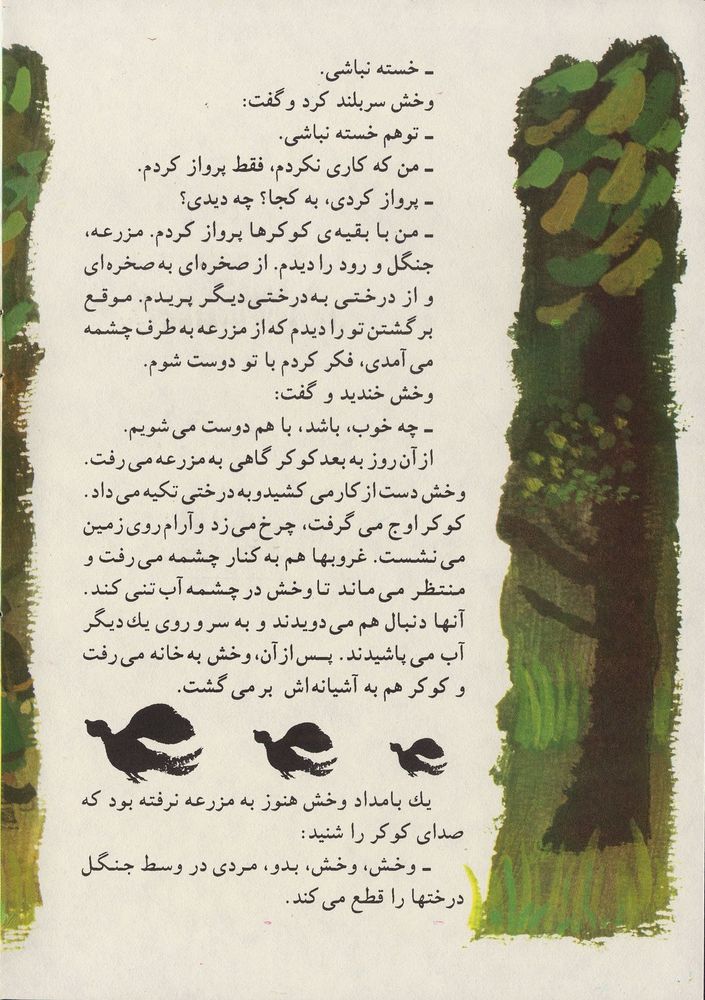 ـ خسته نباشی.
وخش سربلند کرد و گفت:
ـ تو هم خسته نباشی.
ـ من که کاری نکردم، فقط پرواز کردم.
ـ پرواز کردی، به کجا؟ چه دیدی؟
ـ من با بقیه‌ی کوکرها پرواز کردم. مزرعه،
جنگل و رود را دیدم. از صخره‌ای به صخره‌ای
و از درختی به درختی دیگر پریدم. موقع
برگشتن تو را دیدم که از مزرعه به طرف چشمه
می‌آمدی، فکر کردم با تو دوست شوم.
وخش خندید و گفت:
ـ چه خوب، باشد، با هم دوست می‌شویم.
از آن روز به بعد کوکر گاهی به مزرعه می‌رفت.
وخش دست از کار می‌کشید و به درختی تکیه می‌داد.
کوکر اوج می‌گرفت، چرخ می‌زد و آرام روی زمین
می‌نشست. غروبها هم به کنار چشمه می‌رفت و
منتظر می‌ماند تا وخش در چشمه آب تنی کند.
آنها دنبال هم می‌دویدند و به سر و روی یك دیگر
آب می‌پاشیدند. پس از آن، وخش به خانه می‌رفت
و کوکر هم به آشیانه‌اش بر می‌گشت.
یك بامداد وخش هنوز به مزرعه نرفته بود که
صدای کوکر را شنید:
ـ وخش، وخش، بدو، مردی در وسط جنگل
درختها را قطع می‌کند.